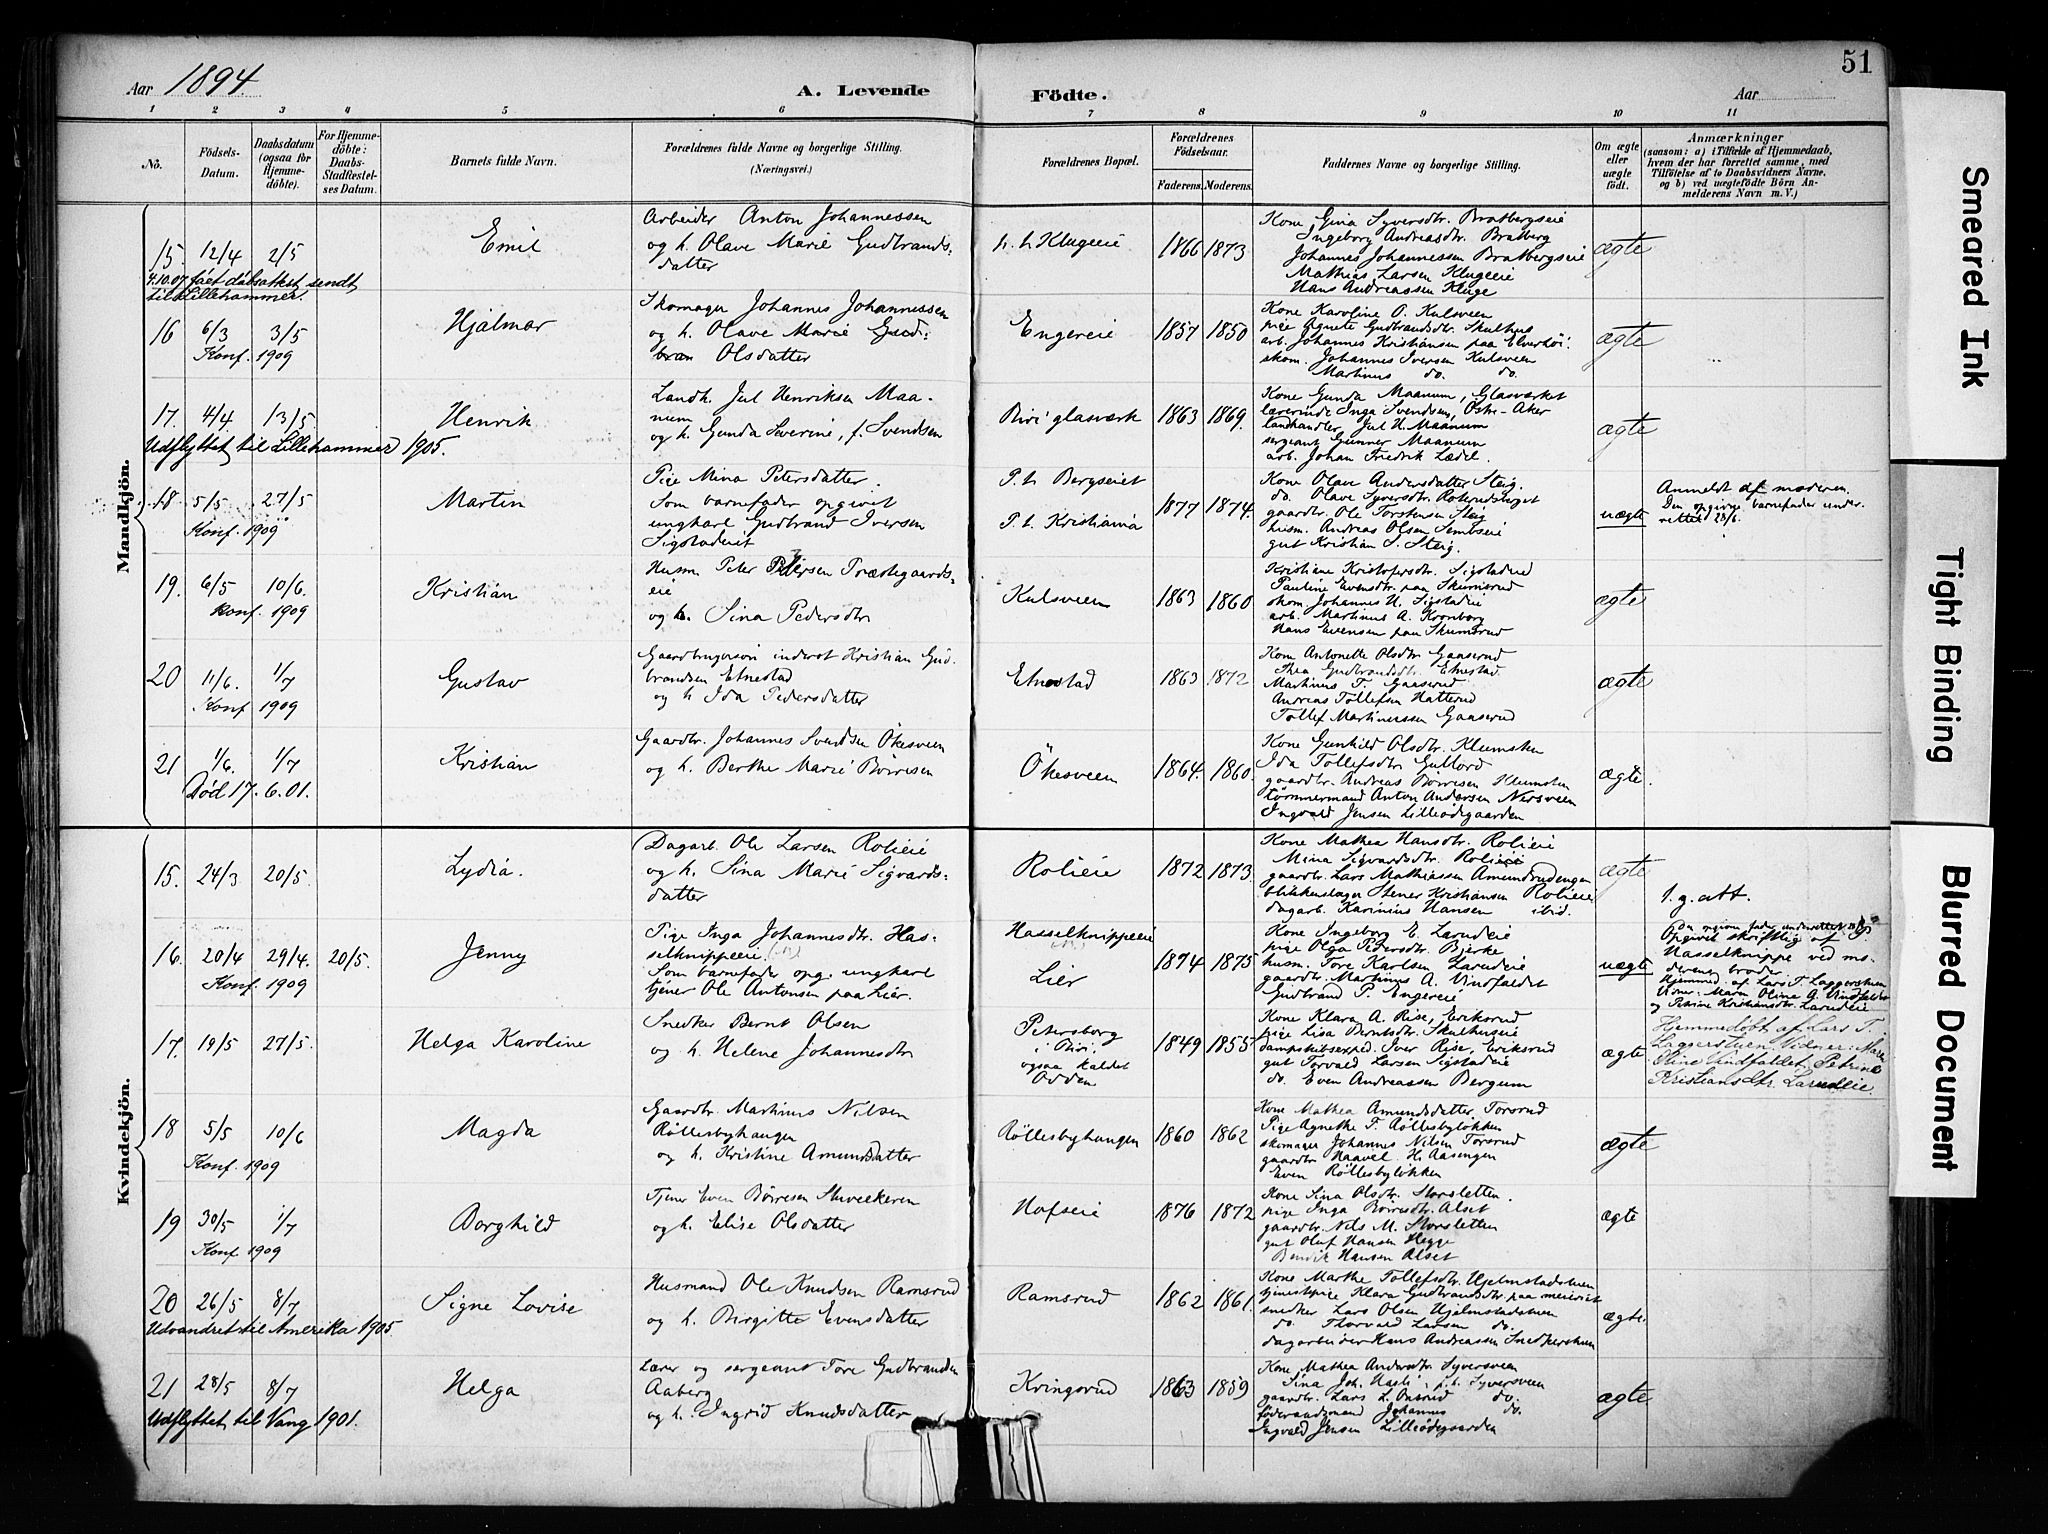 51
Aar 1894.
A. Levende Födte.
Aar
1 2 3 4 5 6 7 8 9 10 11
No.
Födsels-Datum.
Daabsdatum (ogsaa for Hjemme-döbte).
For Hjemme-döbte: Daabs-Stadfæstel-ses Datum.
Barnets fulde Navn.
Forældrenes fulde Navne og borgerlige Stilling.
(Næringsvei.)
Forældrenes Bopæl.
Forældrenes Födselsaar.
Faderens. Moderens.
Faddernes Navne og borgerlige Stilling.
Om ægte eller uægte födt.
Anmærkninger
(saasom: a) i Tilfælde af Hjemmedaab,
hvem der har forrettet samme, med
Tilföielse af to Daabsvidners Navne,
og b) ved uægtefödte Börn An-
melderens Navn m. V.)
Mandkjön.
15. 12/4 2/5
Emil
Arbeider Anton Johannessen
og h. Olave Marie Gudbrands-
datter
p. t. Klugeeie
1866 1873
Kone Gina Syversdtr. Bratbergseie
Ingeborg Andreasdtr. Bratberg
Johannes Johannessen Bratbergseie
Mathias Larsen Klugeeie
Hans Andreassen Kluge
ægte
4.10.07 fået dåbsattest sendt
til Lillehammer.
16 6/3 3/5
Konf. 1909
Hjalmar
Skomager Johannes Johannessen
og h. Olave Marie Gud-
bran Olsdatter
Engereie
1857 1850
Kone Karoline O. Kulsveen
pige Agnete Gudbrandsdtr. Skulhus
arb. Johannes Kristiansen paa Elverhöi.
skom. Johannes Iversen Kulsveen
Martinus do. do.
ægte
17. 4/4 13/5
Henrik
Landh. Jul Henriksen Maa-
num
og h. Gunda Severine, f. Svendsen
Biri glasværk
1863 1869.
Kone Gunda Maanum, Glasværket
lærerinde Inga Svendsen, Östre-Aker
landhandler Jul H. Maanum
sergeant Gunner Maanum
arb. Johan Fredrik Lædel.
ægte
Udflyttet til Lillehammer 1905.
18. 5/5 27/5
Konf. 1909
Martin
Pige Mina Petersdatter.
Som barnefader opgivet
ungkarl Gudbrand Iversen
Sigstadeit
P. t. Bergseiet
P. t. Kristiania
1877 1874.
Kone Olave Andersdatter Steig.
do. Olave Syversdtr. Roterudshaget
gaardbr. Ole Torstensen Steig
husm. Andreas Olsen Sembseie
gut Kristian S. Steig.
uægte
Anmeldt af moderen.
Den opgivne barnefader under-
rettet 28/6.
19. 6/5 10/6.
Konf. 1909
Kristian
Husm. Peter Petersen Præstegaards-
eie
og h. Sina Pedersdtr
Kulsveen
1863 1860
Kristiane Kristofersdtr. Sigstadeid
Pauline Evensdtr. paa Skumsrud
skom. Johannes H. Sigstadeie
arb. Martinus A. Kronborg
Hans Evensen paa Skumsrud
ægte
20 11/6. 1/7
Konf 1909
Gustav
Gaardbrugersön inderst Kristian Gud-
brandsen Etnestad
og h Ida Pedersdatter
Etnestad
1863 1872
Kone Antonette Olsdtr. Gaaserud
Thea Gudbrandsdtr. Etnestad.
Martinus T. Gaaserud
Andreas Tollefsen Hatterud
Tollef Martinussen Gaaserud
ægte
21 1/6. 1/7
Död 17.6.01.
Kristian
Gaardbr. Johannes Svendsen Ökesveen
og h. Berthe Marie Børresen
Ökesveen
1864. 1860.
Kone Gunhild Olsdtr. Klumsten
Ida Tollefsdtr. Gullord
gaardbr. Andreas Børresen Klumsten
tømmermand Anton Andersen Nersveen
Ingvald Jensen Lilleödegaarden
ægte.
Kvindekjön.
15. 24/3 20/5.
Lydia.
Dagarb. Ole Larsen Rolieie
og h. Sina Marie Sigvards-
datter
Rolieie
1872 1873.
Kone Mathea Hansdtr. Rolieie
Mina Sigvardsdtr. Rolieie
gaardbr. Lars Mathiassen Amundrudengen
blikkenslager Stener Kristiansen Rolieie
dagarb. Karinius Hansen ibid.
ægte
1. g. att.
16. 20/4 29/4. 20/5.
Konf. 1909
Jenny
Pige Inga Johannesdtr. Has-
selknippeeie.
Som barnefader opg. ungkarl
tjener Ole Antonsen paa Lier.
Hasselknippeeie
Lier
1874 1875
Kone Ingeborg E. Larudeie
pige Olga Pedersdtr. Bjerke
husm. Tore Karlsen Larudeie
gaardbr. Martinus A. Vindfaldet
Gudbrand P. Engereie
uægte
Den opgivne fader underrettet
Opgivet skriftlig af
Hasselknippe ved mo-
derens broder.
Hjemmed. af Lars T. Laggerstuen
Vidner: Maren Oline A. Vindfaldet
og Petrine Kristiansdtr. Larudeie
17. 19/5 27/5.
Helga Karoline
Snedker Bernt Olsen
og h. Helene Johannesdtr
Petersborg
i Biri,
ogsaa kaldet
Odden
1849 1855
Kone Klara A. Rise, Eriksrud
pige Lisa Berntsdtr. Skulhuseie
dampskibsexped. Iver Rise, Eriksrud
gut Torvald Larsen Sigstadeie
do. Even Andreassen Bergum
ægte
Hjemmedöbt af Lars T.
Laggerstuen. Vidner: Maren
Oline Vindfaldet, Petrine
Kristiansdtr. Larudeie.
18 5/5 10/6
Konf. 1909
Magda
Gaardbr. Martinus Nilsen
Røllesbyhaugen
og h. Kristine Amundsdatter
Røllesbyhaugen
1860 1862
Kone Mathea Amundsdatter Torsrud
Pige Agnethe F. Røllesbyløkken
skomager Johannes Nilsen Torsrud
gaardbr Haavel H. Aasengen
Even Røllesbyløkken
ægte
19 30/5 1/7
Konf. 1909
Borghild
Tjener Even Børresen Stuveekeren
og h. Elise Olsdatter
Hofseie
1876 1872
Kone Sina Olsdtr. Storsletten.
pige Inga Børresdtr. Alset
gaardbr. Nils M. Storsletten
gut Oluf Hansen Hegge
Bendik Hansen Alset
ægte
20 26/5 8/7
Signe Lovise
Husmand Ole Knudsen Ramsrud
og h. Birgitte Evensdatter
Ramsrud
1862 1861.
Kone Marthe Tollefsdtr. Hjelmstadstuen
tjenestpige Klara Gudbrandsdtr paa meieriet
snedker Lars Olsen Hjelmstadstuen
do. Thorvald Larsen do.
dagarbeider Hans Andreassen Snedkerstuen
ægte.
Udvandret til Amerika 1905.
21 28/5 8/7
Helga
Lærer og sergeant Tore Gudbrandsen
Aaberg
og h. Ingrid Knudsdatter
Kringsrud
1863 1859
Kone Mathea Andersdtr. Syversveen
Sina Joh. Hasli, p. t. Syversveen
gaardbr. Lars L. Onsrud do.
föderaadsmand Johannes do.
Ingvald Jensen Lilleödegaarden
ægte
Udflyttet til Vang 1901.
Smeared Ink
Tight Binding
Blurred Document